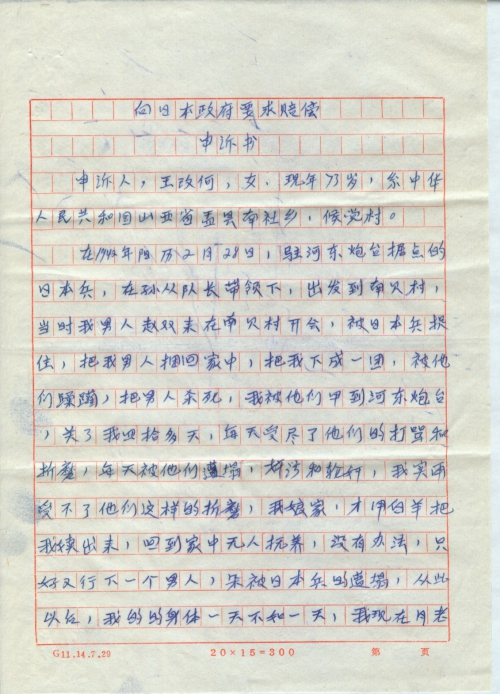 向日本政府要求賠偿
申诉书
申诉人，王改何，女．现年73岁，系中华
人民共和国山西省盂县南社乡，侯党村。
在1942年阳历2月28日，驻河东炮台据点的
日本兵，在孙从队长带领下，出发到南贝村，
当时我男人赵双未在南贝村开会，被日本兵捉
住，把我男人捆回家中，把我下成一团，被他
们蹂躏，把男人杀死，我被他们甲到河东炮台
，关了我四拾多天，每天受尽了他们的打骂和
折磨，每天被他们遭塌，奸污和轮奸，我实再
受不了他们这样的折磨，我娘家，才用白羊把
我续出来，回到家中无人抚养，没有办法，只
好又行下一个男人，朱被日本兵的遭塌，从此
以后，我的的身体一天不如一天，我现在月老
G11.14.7.29
20×15=300
第 页